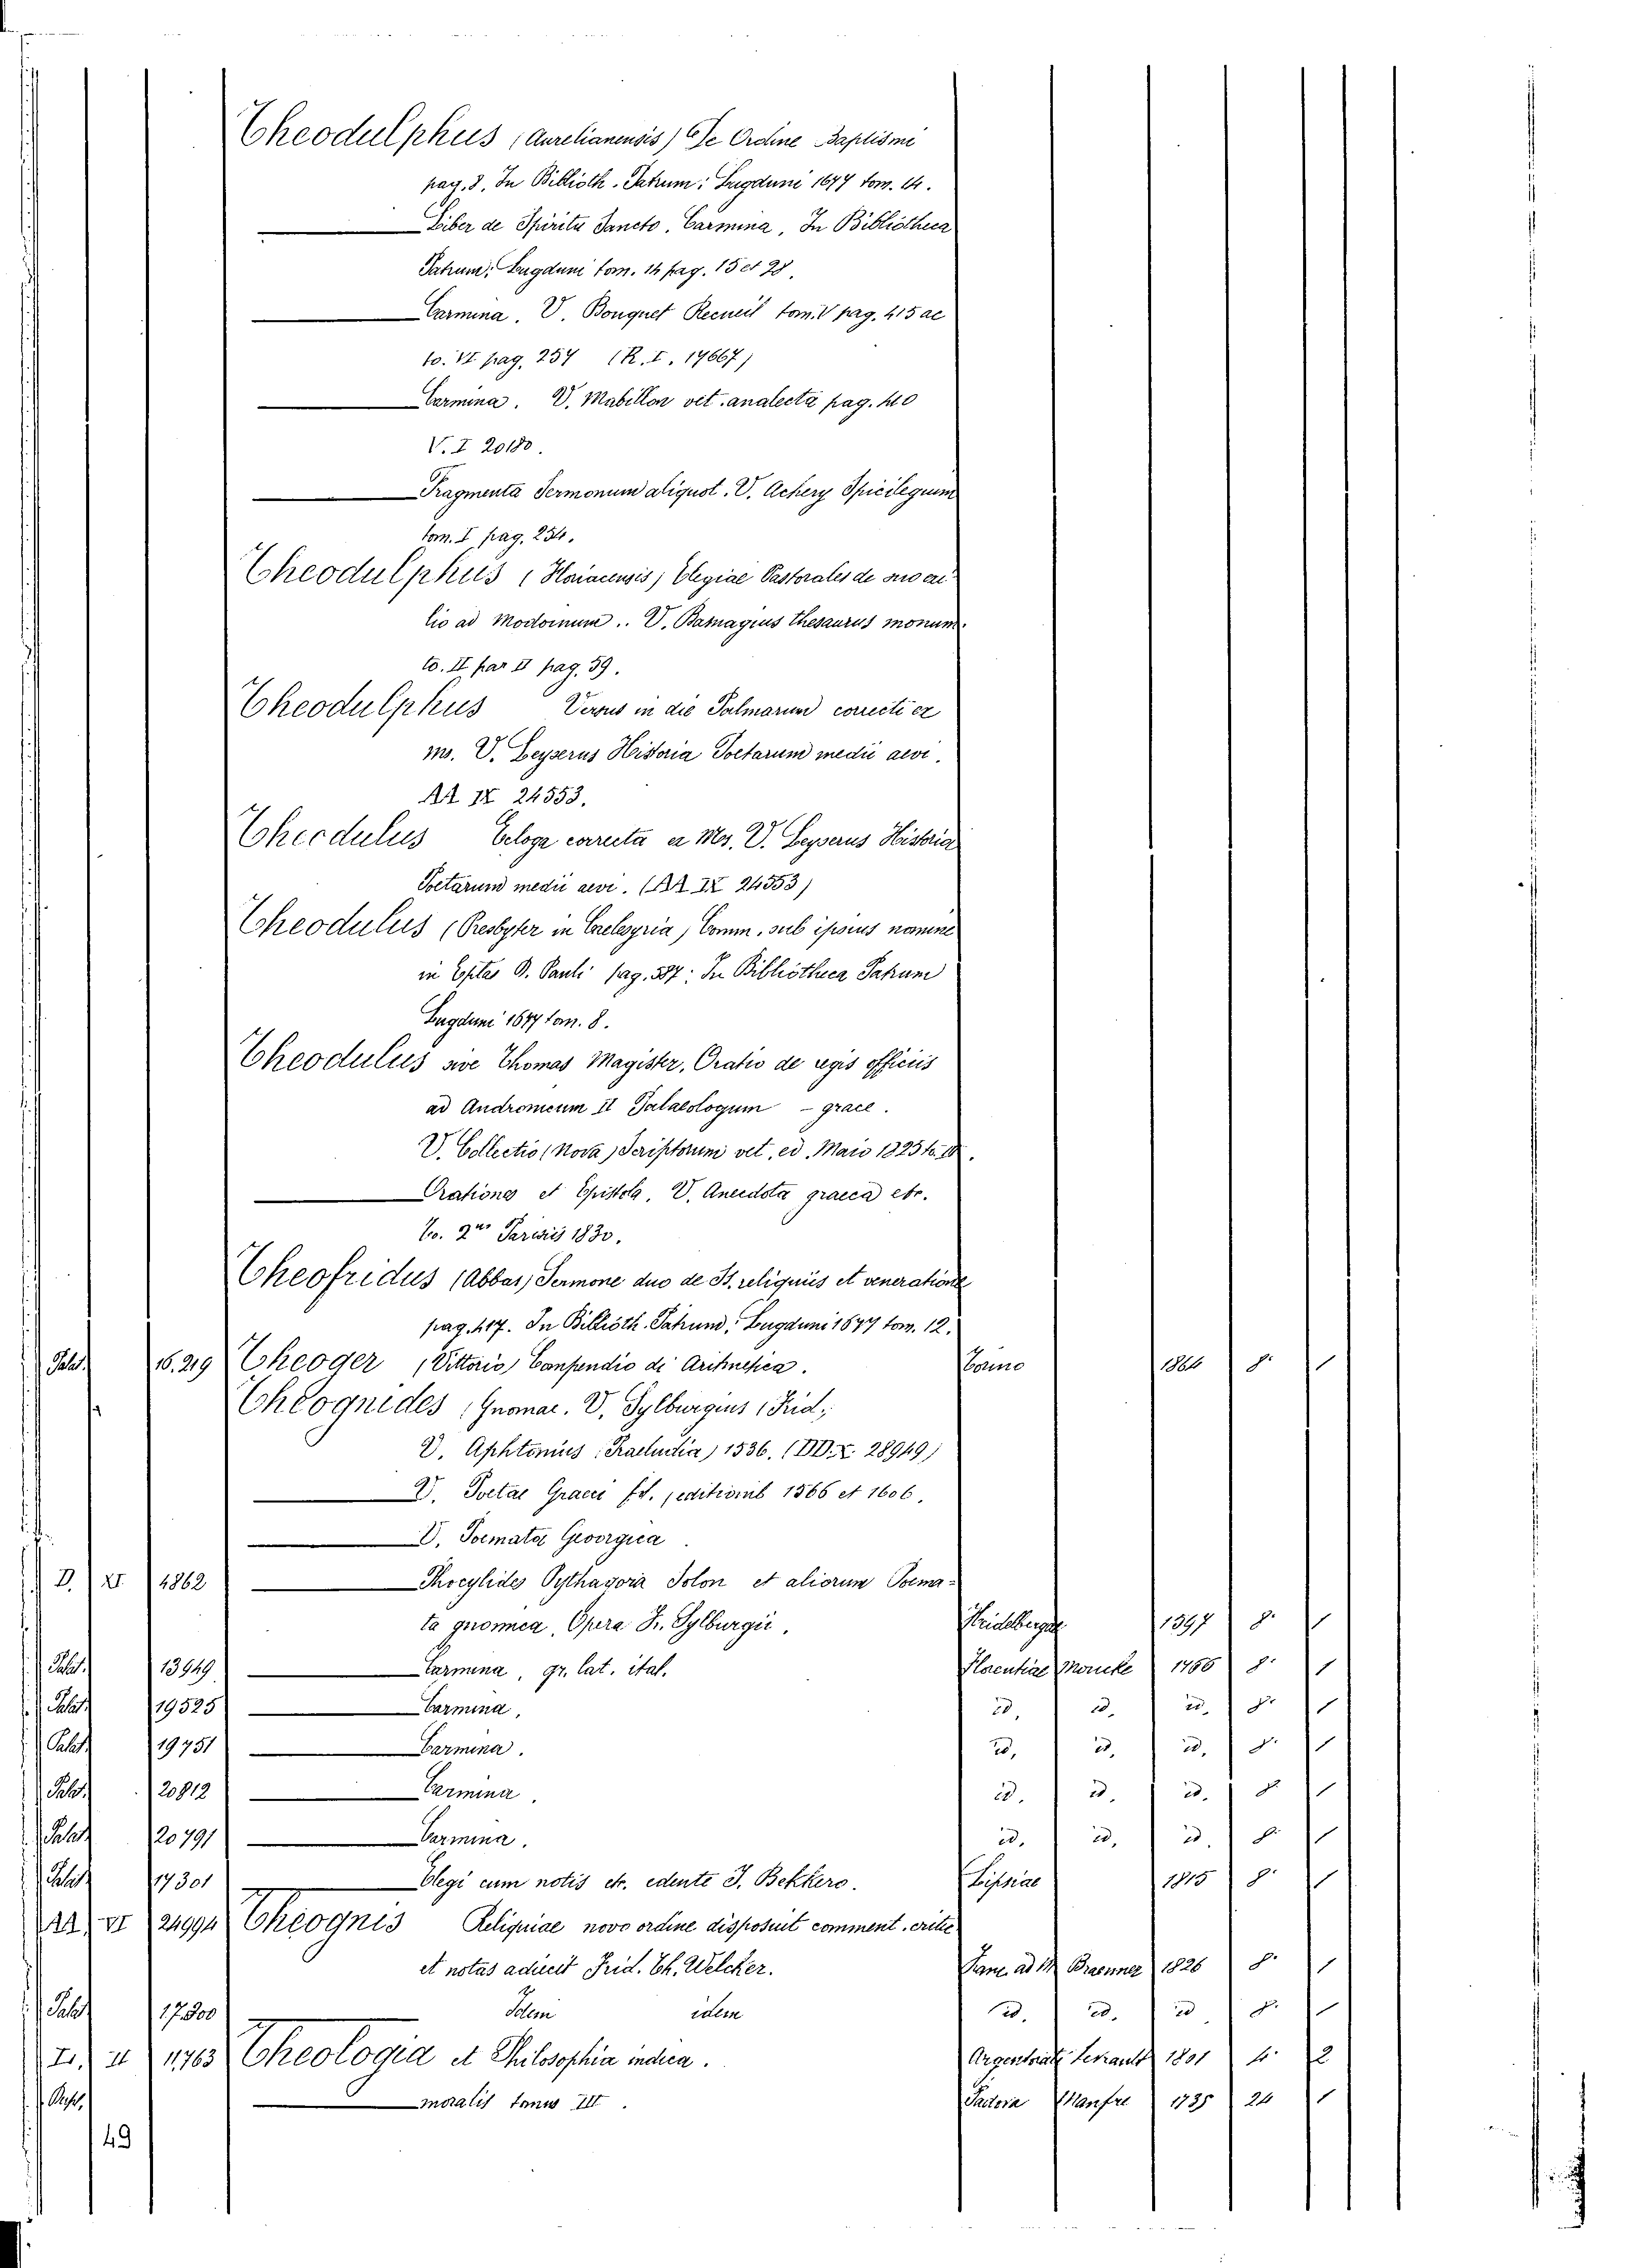 Theodulphus (Aurelianensis) De Ordine Baptismi
pag. 8. In Biblioth. Patrum: Lugduni 1677 tom. 14.
Liber de Spiritu Sancto. Carmina, In Bibliotheca
Patrum: Lugduni tom. 14 pag. 15 et 28.
Carmina. V. Bouquet Recueil tom. V pag. 415 ac
to. VI pag. 257 (R. I. 17667)
Carmina. V. Mabillon vet. analecta pag. 410
V. I 20180.
Fragmenta Sermonum aliquot. V. Achery Spicilegium
tom. I pag. 254.
Theodulphus (Floriacensis) Elegiae Pastorales de suo exi
lio ad Modoinum.. V. Basnagius thesaurus monum.
to. II par II pag. 59.
Theodulphus Versus in die Palmarum correcti ex
ms. V. Leyserus Historia Poetarum medii aevi.
AA IX 24553.
Theodulus Ecloga correcta ex Ms. V. Leyserus Historia
Poetarum medii aevi. (AA IX 24553)
Theodulus (Presbyter in Coelesyria) Comm. sub ipsius nomine
in Eptas D. Pauli pag. 587: In Bibliotheca Patrum
Lugduni 1677 tom. 8.
Theodulus sive Thomas Magister, Oratio de regis officiis
ad Andronicum II Palaeologum - graece.
V. Collectio (Nova) Scriptorum vet. ed. Maio 1825 to.
Orationes et Epistola. V. Anecdota graeca etc.
to. 2us Parisiis 1830.
Theofridus (Abbas) Sermone duo de St. reliquiis et veneratione
pag. 417. In Biblioth. Patrum: Lugduni 1677 tom. 12.
Palat. 16.219 Theoger (Vittorio) Conpendio di Aritmetica. Torino 1864 8. 1
Theognides (Gnomae. V. Sylburgius (Frid.)
V. Aphtonius (Praeludia) 1536. (DD. X. 28949)
V. Poetae Graeci fol. (editionib 1566 et 1606.
V. Poemata Georgica
D. XI 4862 Phocylides Pythagora Solon et aliorum Poema-
ta gnomica, Opera Fr. Sylburgii. Heidelbergae 1597 8. 1
Palat. 13949 Carmina, gr. lat. ital. Florentiae Moucke 1766 8. 1
Palat. 19525 Carmina. id. id. id. 8. 1
Palat. 19751 Carmina. id. id. id. 8. 1
Palat. 20812 Carmina. id. id. id. 8. 1
Palat. 20791 Carmina. id. id. id. 8. 1
Palat. 17301 Elegi cum notis etc. edente J. Bekkero. Lipsiae 1815 8. 1
AA. VI 24994 Theognis Reliquiae novo ordine disposuit comment. critic
et notas adiecit Frid. Th. Welcker. Franc. ad M. Broenner 1826 8. 1
Palat. 17.300 Idem idem id. id. id 8. 1
I. II 11763 Theologia et Philosophia indica. Argentorati Levrault 1801 4. 2
moralis tomus III. Patavia Manfre 1735 24 1
49